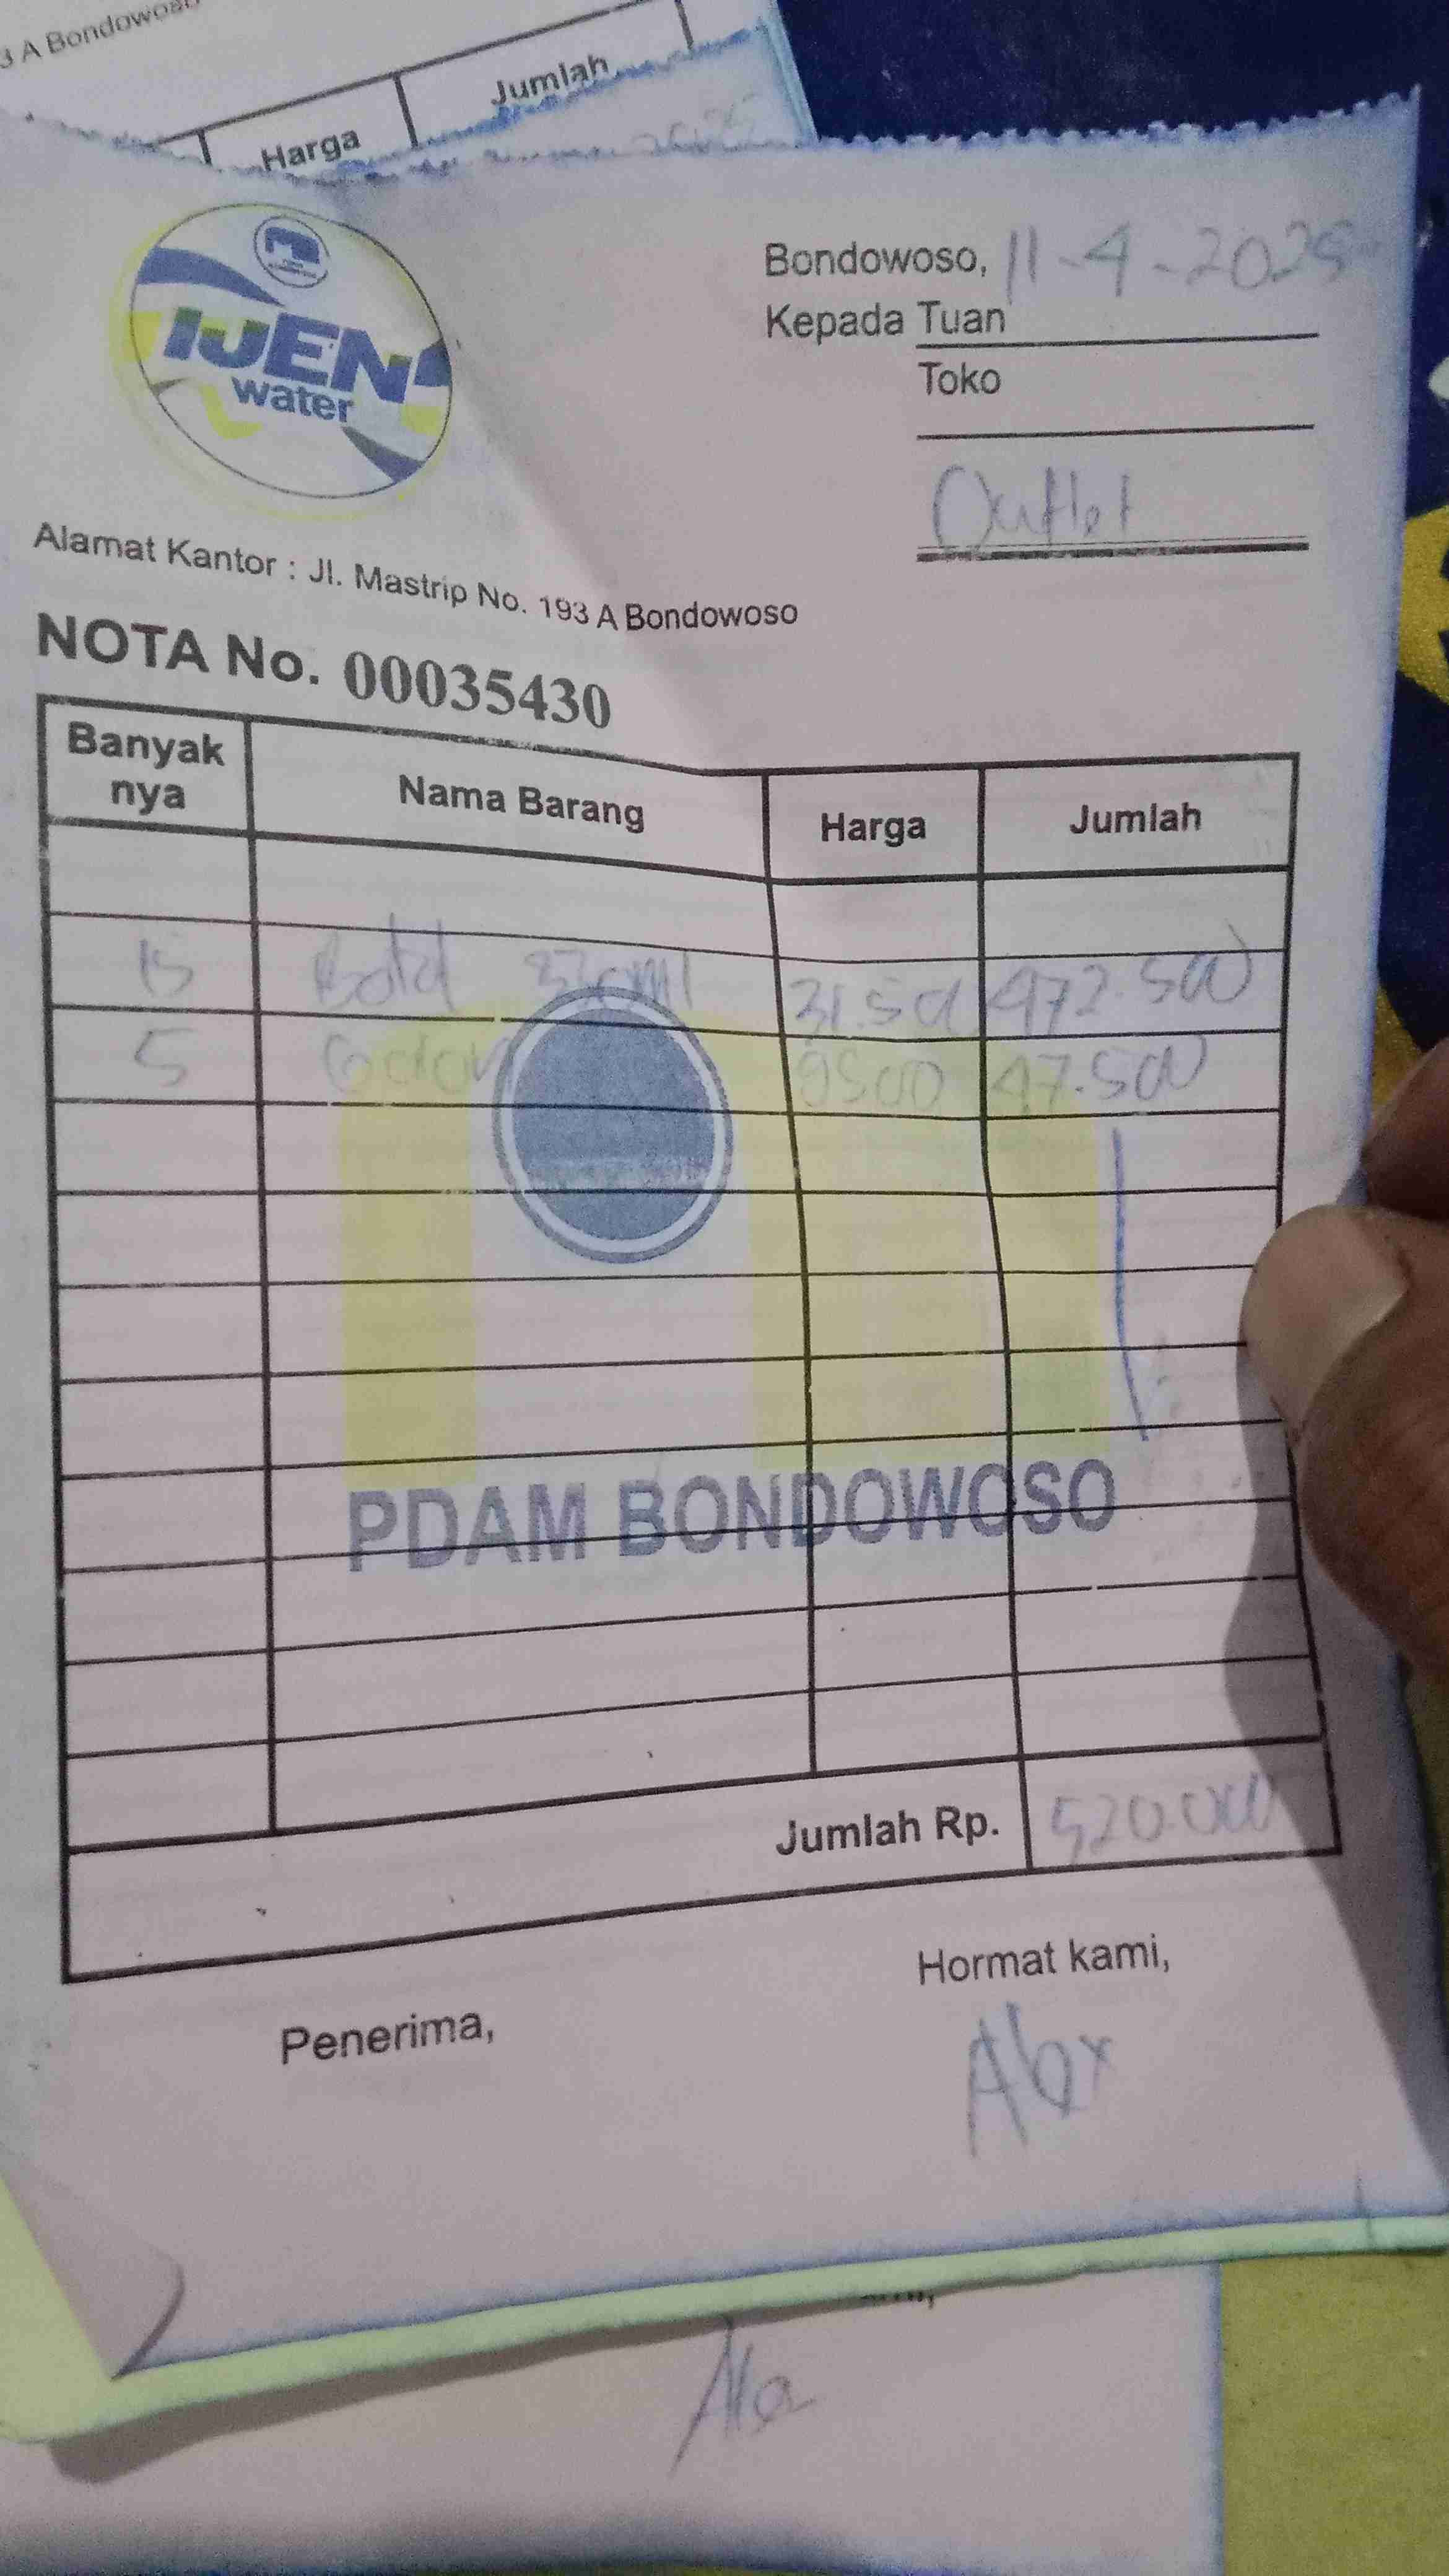 3 A Bondowoso
Harga Jumlah
IJEN
water
Bondowoso, 11-4-2025
Kepada Tuan
Toko
Outlet
Alamat Kantor : Jl. Mastrip No. 193 A Bondowoso
NOTA No. 00035430
Banyak nya Nama Barang Harga Jumlah
15 Botol 31.500 472.500
5 Galon 9500 47.500
PDAM BONDOWOSO
Jumlah Rp. 520.000
Hormat kami,
Penerima,
Alex